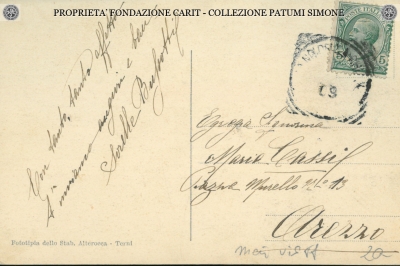 PROPRIETA' FONDAZIONE CARIT - COLLEZIONE PATUMI SIMONE
Con tanto, tanto affetto
t'inviamo auguri e baci
Sorelle
POSTE ITALIANE
Egregia Signorina
Maria Cassij
Piazza Murello N° 13
Arezzo
Fototipia dello Stab. Alterocca - Terni
20-